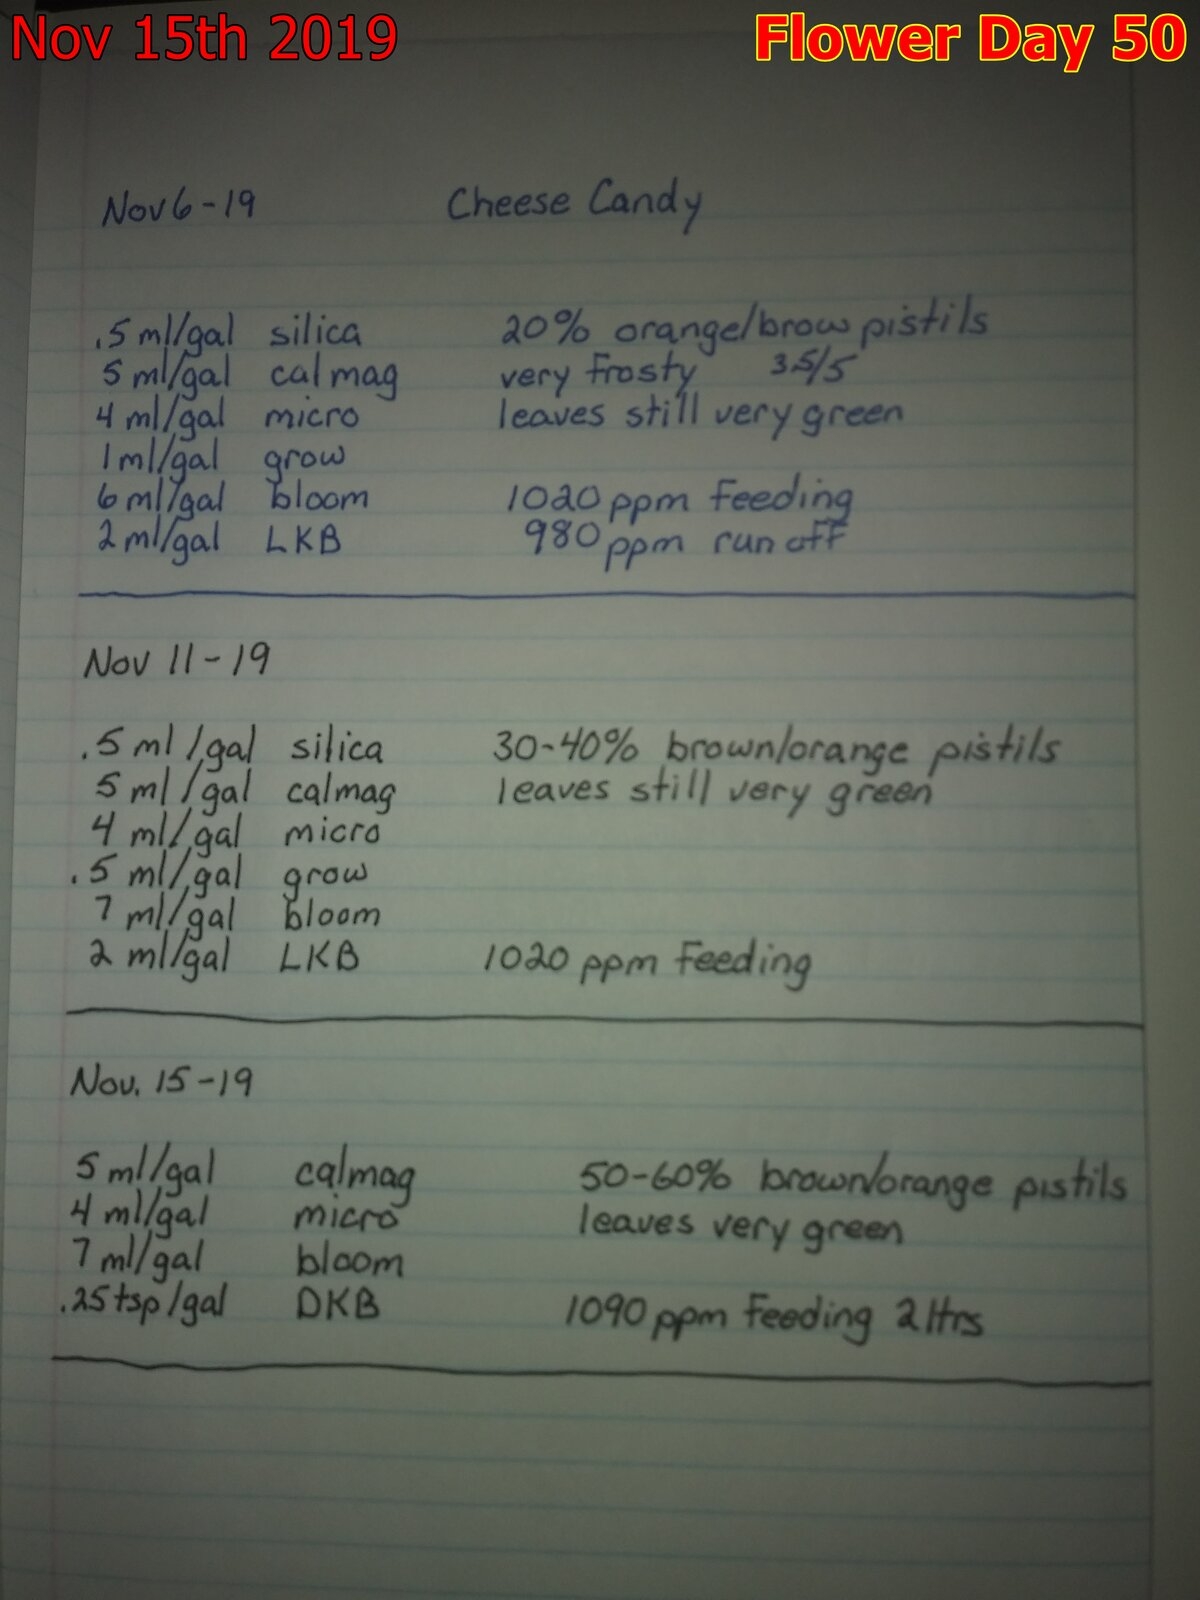 Nov 15th 2019 Flower Day 50
Nov 6-19 Cheese Candy
.5 ml/gal silica 20% orange/brow pistils
5 ml/gal calmag very frosty 3.5/5
4 ml/gal micro leaves still very green
1 ml/gal grow
6 ml/gal bloom 1020 ppm feeding
2 ml/gal LKB 980 ppm run off
Nov 11-19
.5 ml/gal silica 30-40% brown/orange pistils
5 ml/gal calmag leaves still very green
4 ml/gal micro
.5 ml/gal grow
7 ml/gal bloom
2 ml/gal LKB 1020 ppm feeding
Nov. 15-19
5 ml/gal calmag 50-60% brown/orange pistils
4 ml/gal micro leaves very green
7 ml/gal bloom
.25 tsp/gal DKB 1090 ppm feeding 2 ltrs